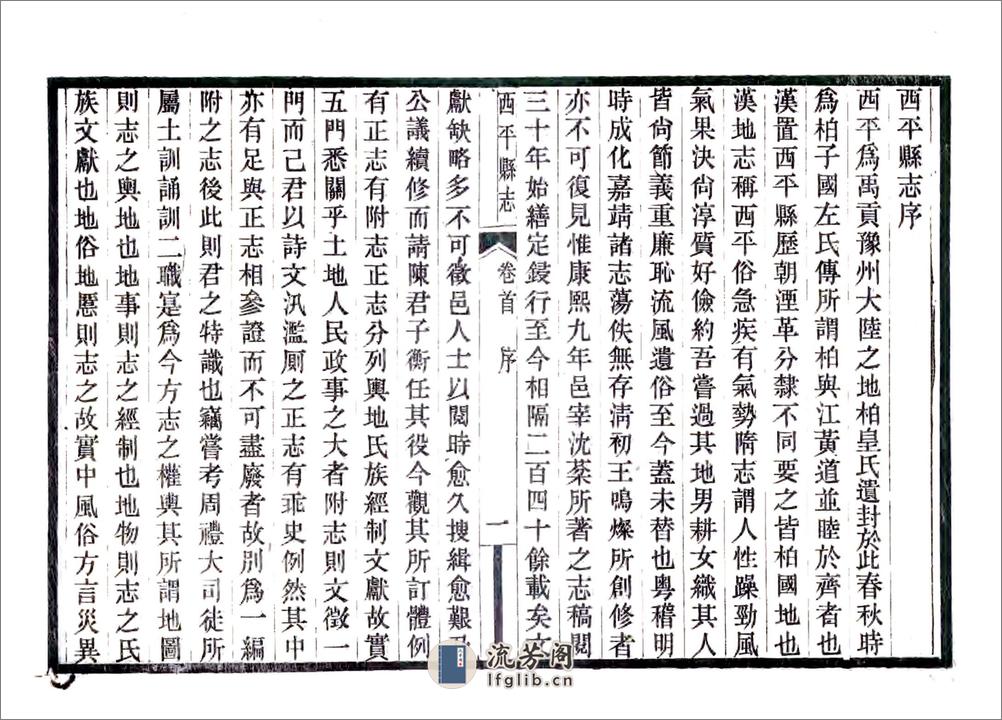 西平縣志序
西平爲禹貢豫州大陸之地柏皇氏遺封於此春秋時
爲柏子國左氏傳所謂柏與江黃道並睦於齊者也
漢置西平縣歷朝湮革分隸不同要之皆柏國地也
漢地志稱西平俗急疾有氣勢隋志謂人性躁勁風
氣果決尙淳質好儉約吾嘗過其地男耕女織其人
皆尙節義重廉恥流風遺俗至今蓋未替也粤稽明
時成化嘉靖諸志蕩佚無存淸初王鳴燦所創修者
亦不可復見惟康熙九年邑宰沈棻所著之志稿閱
三十年始繕定鋟行至今相隔二百四十餘載矣文
西平縣志 卷首 序 一
獻缺略多不可徵邑人士以閱時愈久搜緝愈艱
公議續修而請陳君子衡任其役今觀其所訂體例
有正志有附志正志分列輿地氏族經制文獻故實
五門悉關乎土地人民政事之大者附志則文徵一
門而已君以詩文汎濫厠之正志有乖史例然其中
亦有足與正志相參證而不可盡廢者故別爲一編
附之志後此則君之特識也竊嘗考周禮大司徒所
屬土訓誦訓二職寔爲今方志之權輿其所謂地圖
則志之輿地也地事則志之經制也地物則志之氏
族文獻也地俗地慝則志之故實中風俗方言災異
流芳阁
lfglib.cn